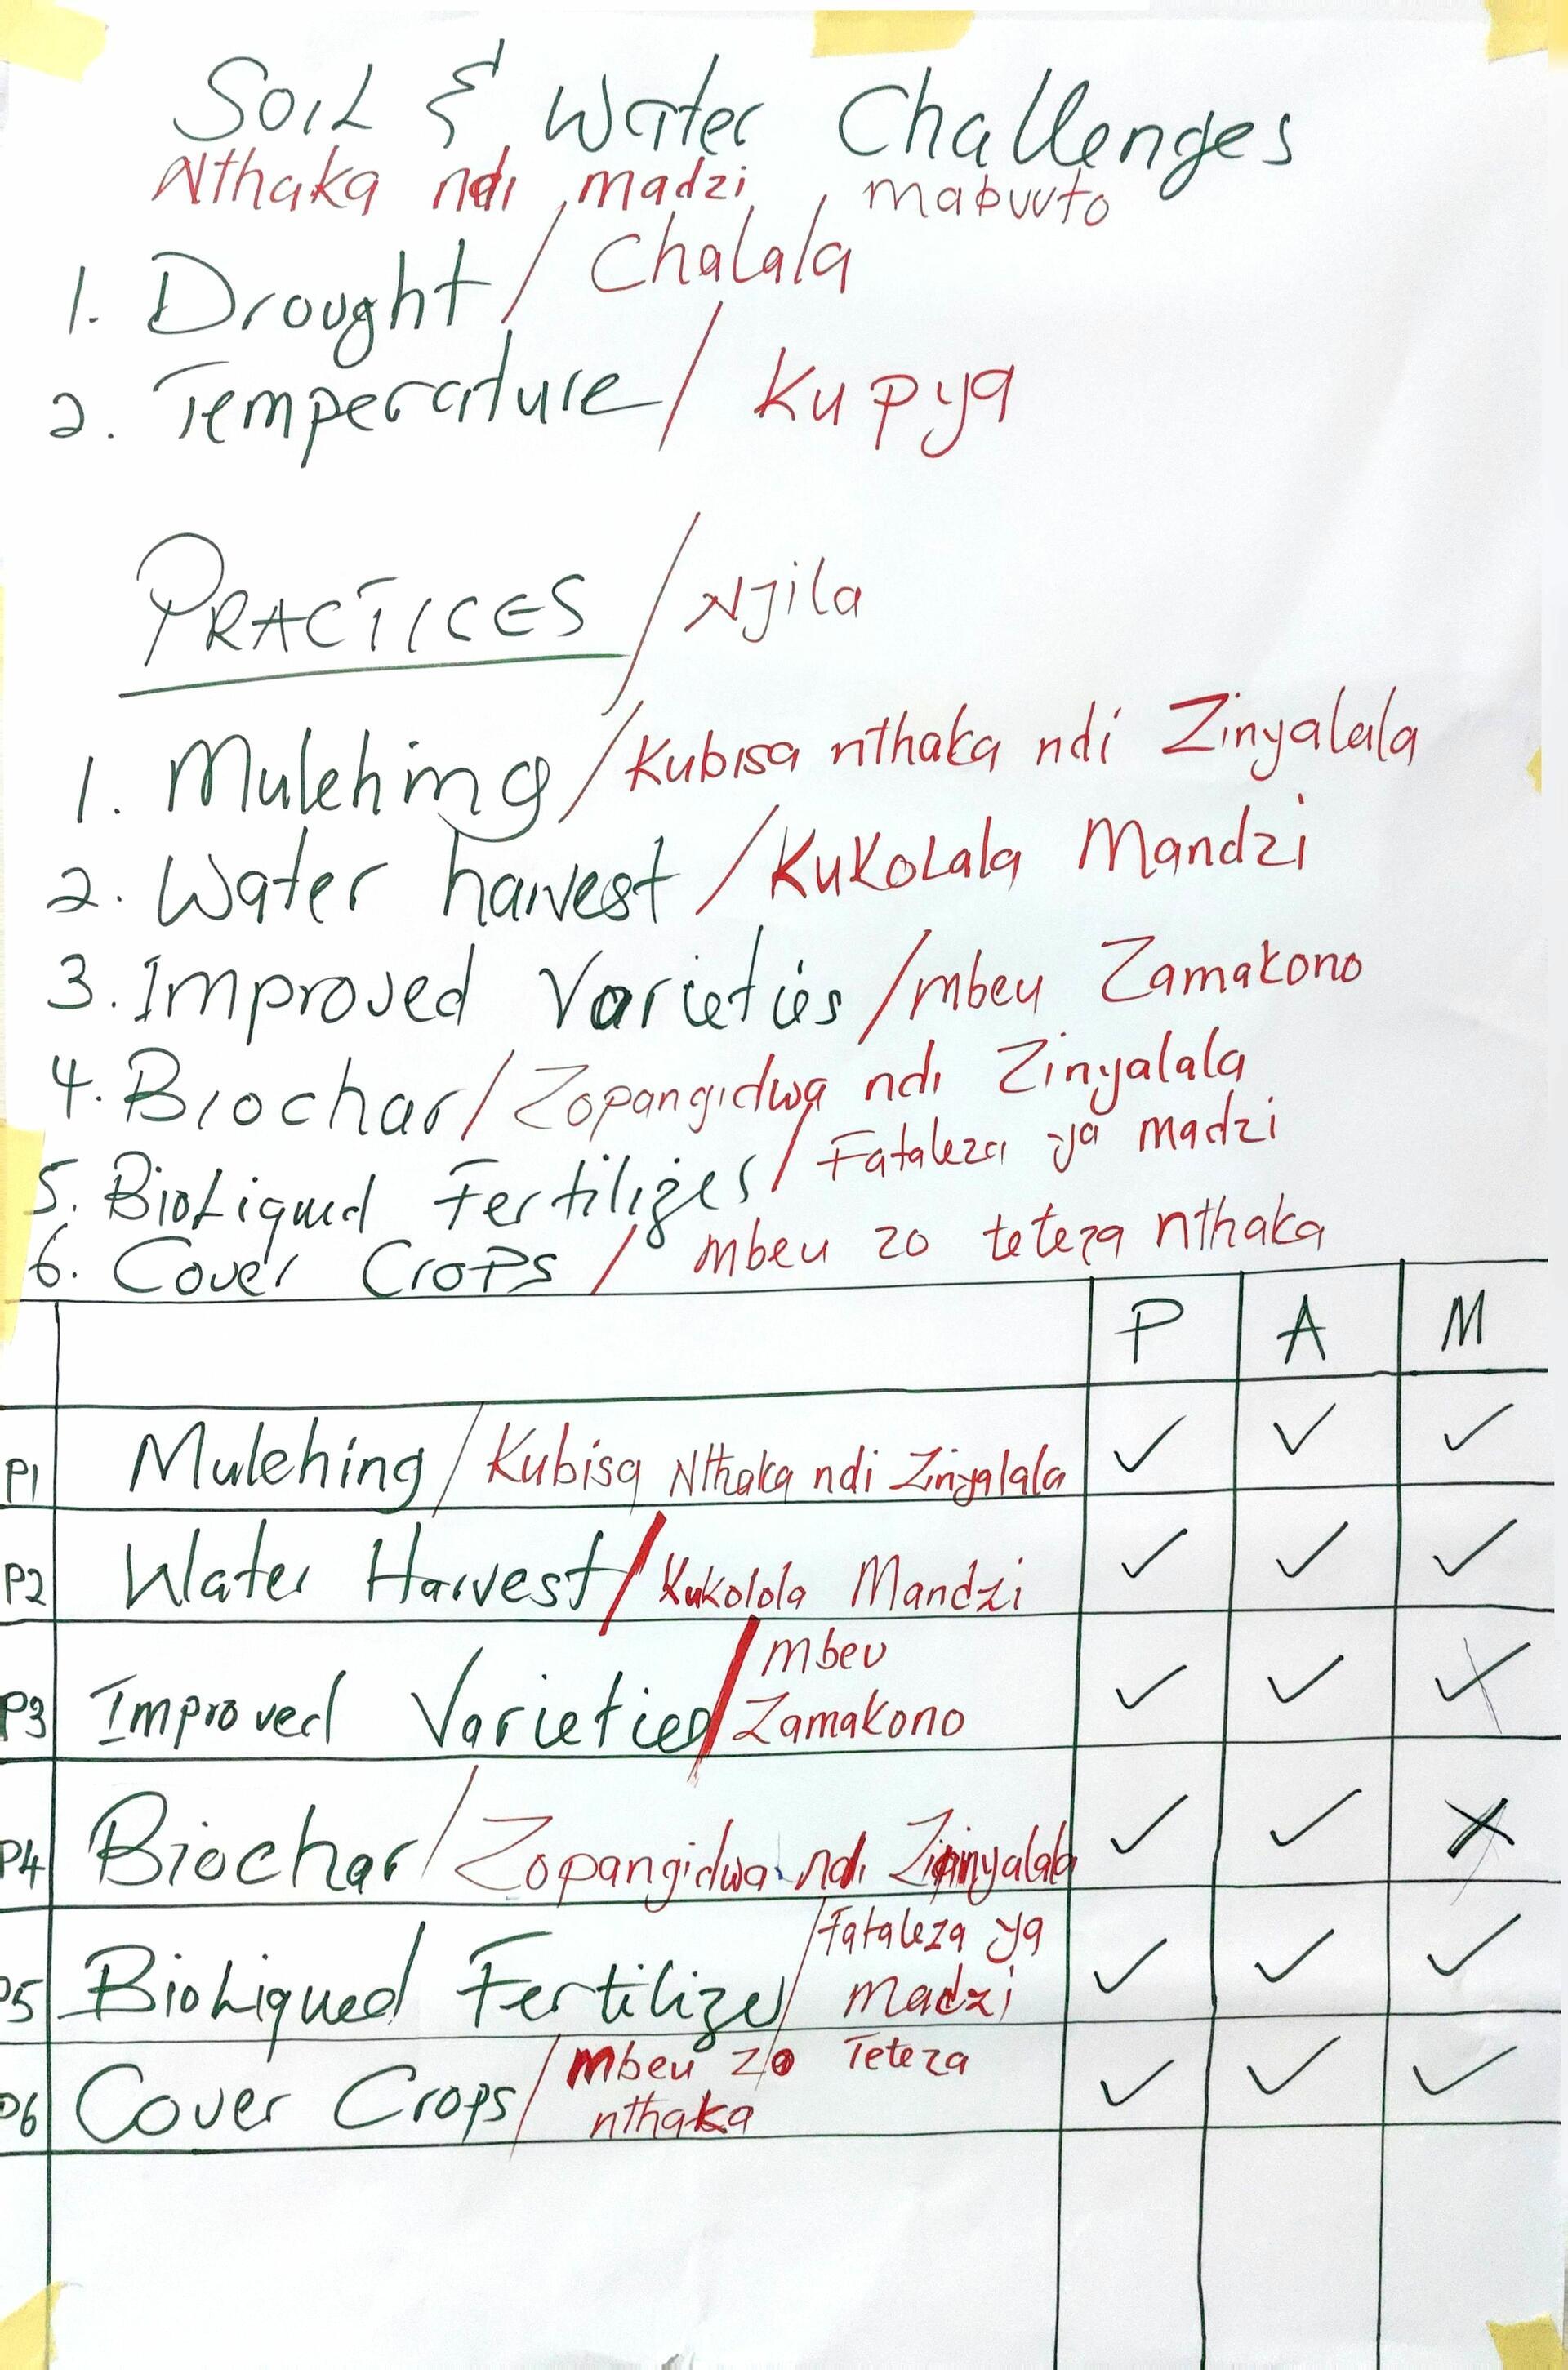 Soil & Water Challenges
Nthaka ndi madzi, mabvuto
1. Drought / Chalala
2. Temperature / Kupya
PRACTICES / Njila
1. Mulching / Kubisa nthaka ndi Zinyalala
2. Water harvest / KuKoLala Mandzi
3. Improved Varieties / mbeu Zamakono
4. Biochar / Zopangidwa ndi Zinyalala
5. BioLiqued Fertilizes / Fataleza ya madzi
6. Cover Crops / mbeu zo teteza nthaka
P A M
P1 Mulching / Kubisa Nthaka ndi Zinyalala ✓ ✓ ✓
P2 Water Harvest / Kukolola Mandzi ✓ ✓ ✓
P3 Improved Varieties / Mbeu Zamakono ✓ ✓ ✓
P4 Biochar / Zopangidwa ndi Zinyalala ✓ ✓ X
P5 BioLiqued Fertilizer / Fataleza ya Madzi ✓ ✓ ✓
P6 Cover Crops / Mbeu zo Teteza nthaka ✓ ✓ ✓